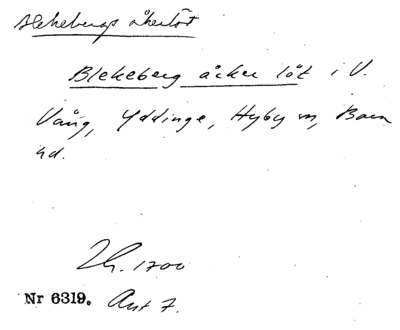 Blekebergs åkerlöt
Blekeberg åcker löt i V.
Vång, Yddinge, Hyby sn, Bara
hd.
Lh. 1700
Nr 6319. Ant 7.